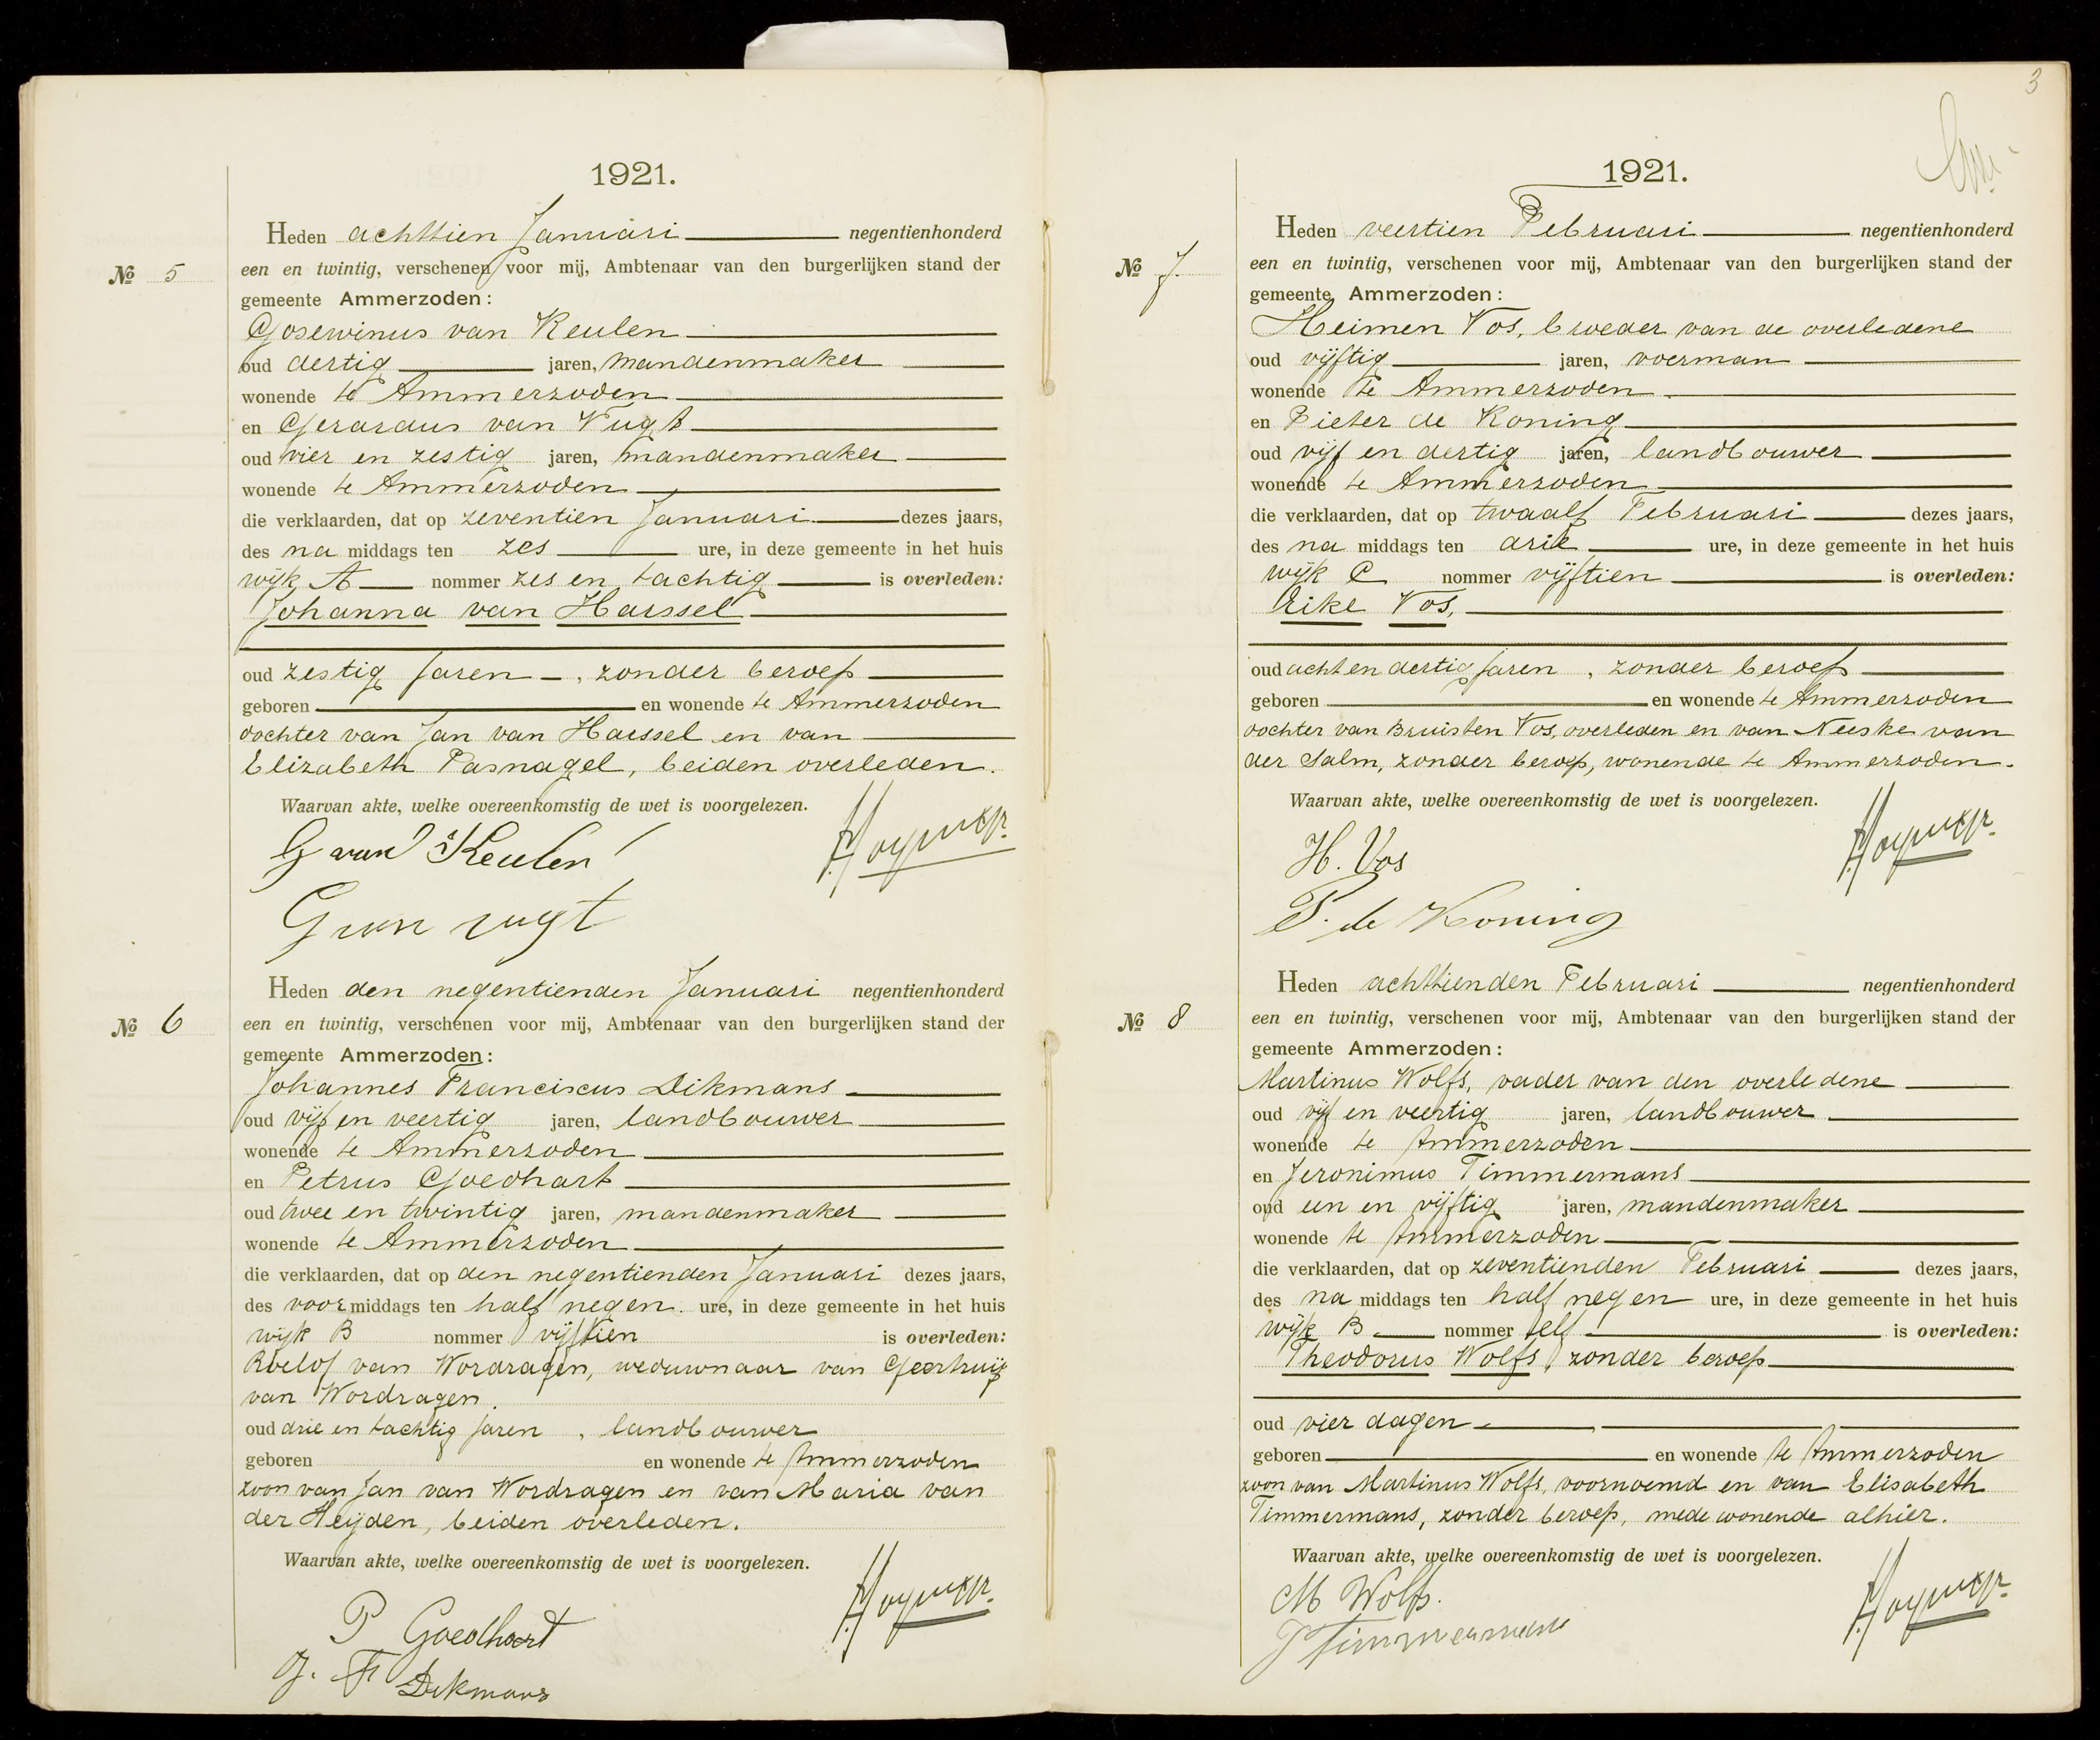 1921.
Heden achttien Januari negentienhonderd
No 5
een en twintig, verschenen voor mij, Ambtenaar van den burgerlijken stand der
gemeente Ammerzoden:
Gosewinus van Keulen
oud dertig jaren, mandenmaker
wonende te Ammerzoden
en Gerardus van Vugt
oud vier en zestig jaren, mandenmaker
wonende te Ammerzoden
die verklaarden, dat op zeventien Januari dezes jaars,
des na middags ten zes ure, in deze gemeente in het huis
wijk A nommer zes en tachtig is overleden:
Johanna van Haessel
oud zestig jaren, zonder beroep
geboren en wonende te Ammerzoden
dochter van Jan van Haessel en van
Elizabeth Pasnagel, beiden overleden.
Waarvan akte, welke overeenkomstig de wet is voorgelezen.
G van Keulen
G van vugt
Heden den negentienden Januari negentienhonderd
No 6
een en twintig, verschenen voor mij, Ambtenaar van den burgerlijken stand der
gemeente Ammerzoden:
Johannes Franciscus Dikmans
oud vijf en veertig jaren, landbouwer
wonende te Ammerzoden
en Petrus Goedhart
oud twee en twintig jaren, mandenmaker
wonende te Ammerzoden
die verklaarden, dat op den negentienden Januari dezes jaars,
des voor middags ten half negen ure, in deze gemeente in het huis
wijk B nommer vijftien is overleden:
Roelof van Wordragen, weduwnaar van Geerhuij
van Wordragen.
oud drie en tachtig jaren, landbouwer
geboren en wonende te Ammerzoden
zoon van Jan van Wordragen en van Maria van
der Heijden, beiden overleden.
Waarvan akte, welke overeenkomstig de wet is voorgelezen.
P Goedhart
J. F Dikmans
3
1921.
Heden veertien Februari negentienhonderd
No 7.
een en twintig, verschenen voor mij, Ambtenaar van den burgerlijken stand der
gemeente Ammerzoden:
Heimen Vos, broeder van de overledene
oud vijftig jaren, voerman
wonende te Ammerzoden
en Pieter de Koning
oud vijf en dertig jaren, landbouwer
wonende te Ammerzoden
die verklaarden, dat op twaalf Februari dezes jaars,
des na middags ten drie ure, in deze gemeente in het huis
wijk C nommer vijftien is overleden:
Eike Vos,
oud acht en dertig jaren, zonder beroep
geboren en wonende te Ammerzoden
dochter van Bruisten Vos, overleden en van Neeske van
der Salm, zonder beroep, wonende te Ammerzoden.
Waarvan akte, welke overeenkomstig de wet is voorgelezen.
H. Vos
P. de Koning
Heden achttienden Februari negentienhonderd
No 8
een en twintig, verschenen voor mij, Ambtenaar van den burgerlijken stand der
gemeente Ammerzoden:
Martinus Wolfs, vader van den overledene
oud vijf en veertig jaren, landbouwer
wonende te Ammerzoden
en Jeronimus Timmermans
oud een en vijftig jaren, mandenmaker
wonende te Ammerzoden
die verklaarden, dat op zeventienden Februari dezes jaars,
des na middags ten half negen ure, in deze gemeente in het huis
wijk B nommer elf is overleden:
Theodorus Wolfs, zonder beroep
oud vier dagen
geboren en wonende te Ammerzoden
zoon van Martinus Wolfs, voornoemd en van Elisabeth
Timmermans, zonder beroep, mede wonende alhier.
Waarvan akte, welke overeenkomstig de wet is voorgelezen.
M Wolfs.
J Timmermans